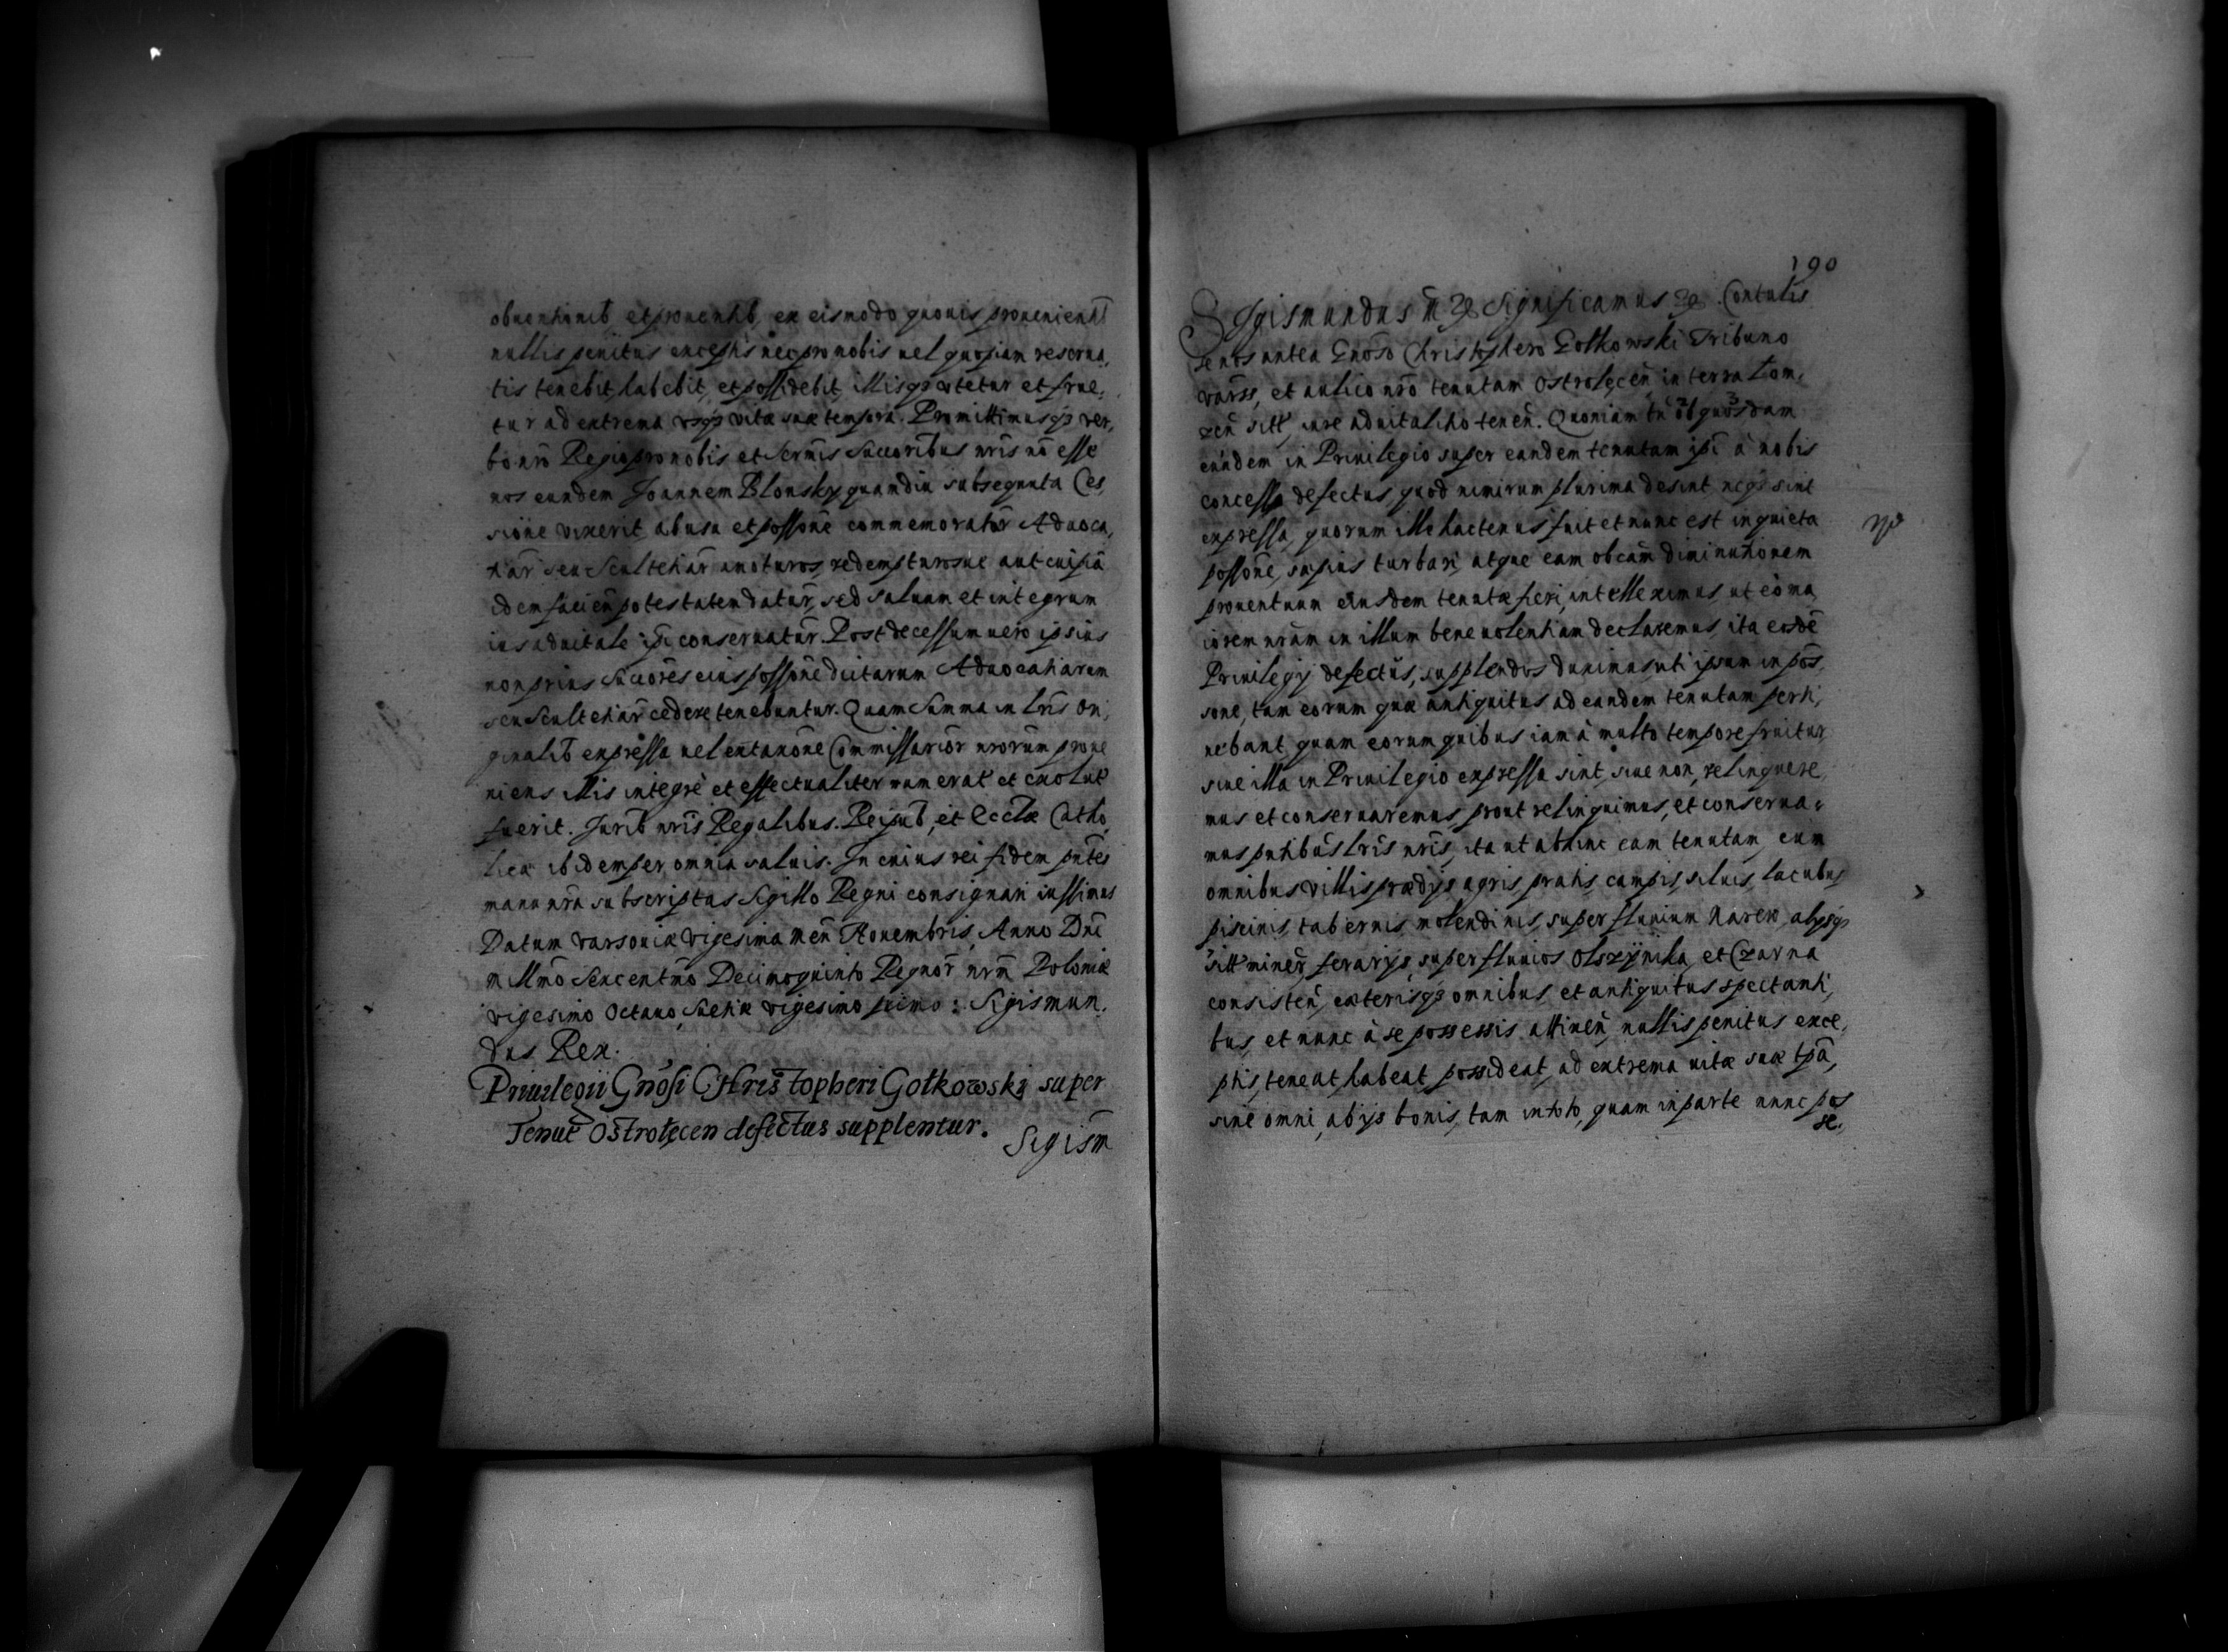 obuentionib, et prouentib, ex eismodo quouis prouenientib
nullis penitus exceptis nec pro nobis uel quopiam reserua,
tis tenebit, habebit, et possidebit, illisqз utetur et frue,
tur ad extrema usqз vitæ suæ tempora. Promittimusqз ver,
bo nro Regio pro nobis et Sermis Succoribus nris nō esse
nos eundem Joannem Blonsky quamdiu subsequuta Ces,
sione vixerit ab usu et possone commemoratar Aduoca,
tiar seu Scultetiar amoturos, redempturosue aut cuipiā
idem facien potestatem datur, sed saluum et integrum
ius aduitale ipi conseruatur. Post decessum uero ipsius
non prius Succores eius possone dictarum Aduocatiarum
seu Scultetiar cedere tenebuntur. Quam Summa in Lris Ori,
ginalib expressa uel extaxone Commissarior nrorum proue
niens illis integrè et effectualiter numerat et exolut
fuerit. Jurib nris Regalibus. Reipub, et Ecclæ Catho,
licæ ibidem per omnia saluis. In cuius rei fidem pntes
manu nra subscriptas Sigillo Regni consignari iussimus
Datum Varsouiæ Vigesima men Nouembris, Anno Dni
Millmo Sexcentmo Decimoquinto Regnor nrm Poloniæ
vigesimo Octauo, Suetiæ vigesimo primo: Sigismun,
dus Rex.
Priuilegii Gnosi Christopheri Gołkowski super
Tenut Ostrołęcen defectus supplentur.
Sigism
190
Sigismundus Significamus Contulis
se nos antea Gnoso Christophero Gołkowski Tribuno
varss, et aulico nro tenutam Ostrołęcen in terra Lom,
zen sitt, iure aduitalitio tenen. Quoniam tn ob quosdam
eundem in Priuilegio super eandem tenutam ipi à nobis
concesso defectus, quod nimirum plurima desint neqз sint
expressa, quorum ille hactenus fuit et nunc est in quieta
possone, sæpius turbari, atque eam ob cam diminutionem
prouentuum eiusdem tenutæ fieri, intelleximus, ut eò ma,
iorem nram in illum beneuolentiam declaremus, ita eosdē
Priuilegij defectus, supplendos duximus, uti ipsum in pos,
sone, tam eorum quæ antiquitus ad eandem tenutam perti,
nebant, quam eorum quibus iam à multo tempore fruitur,
siue illa in Priuilegio expressa sint, siue non, relinquere,
mus et conseruaremus, prout relinquimus, et conserua,
mus pntibus Lris nris, ita ut abhinc eam tenutam, cum
omnibus villis, prædijs agris, pratis, campis, siluis, lacubus
piscinis, tabernis, molendinis, super fluuium Narew, alysqз
sitt miner, ferarijs, super fluuios Olszynka, et Czarna
consisten, cæterisqз omnibus, et antiquitus spectanti,
bus, et nunc à se possessis attinen, nullis penitus exce,
ptis, teneat, habeat, possideat, ad extrema uitæ suæ tpa,
sine omni, ab ijs bonis, tam in toto, quam in parte nunc pos
se.